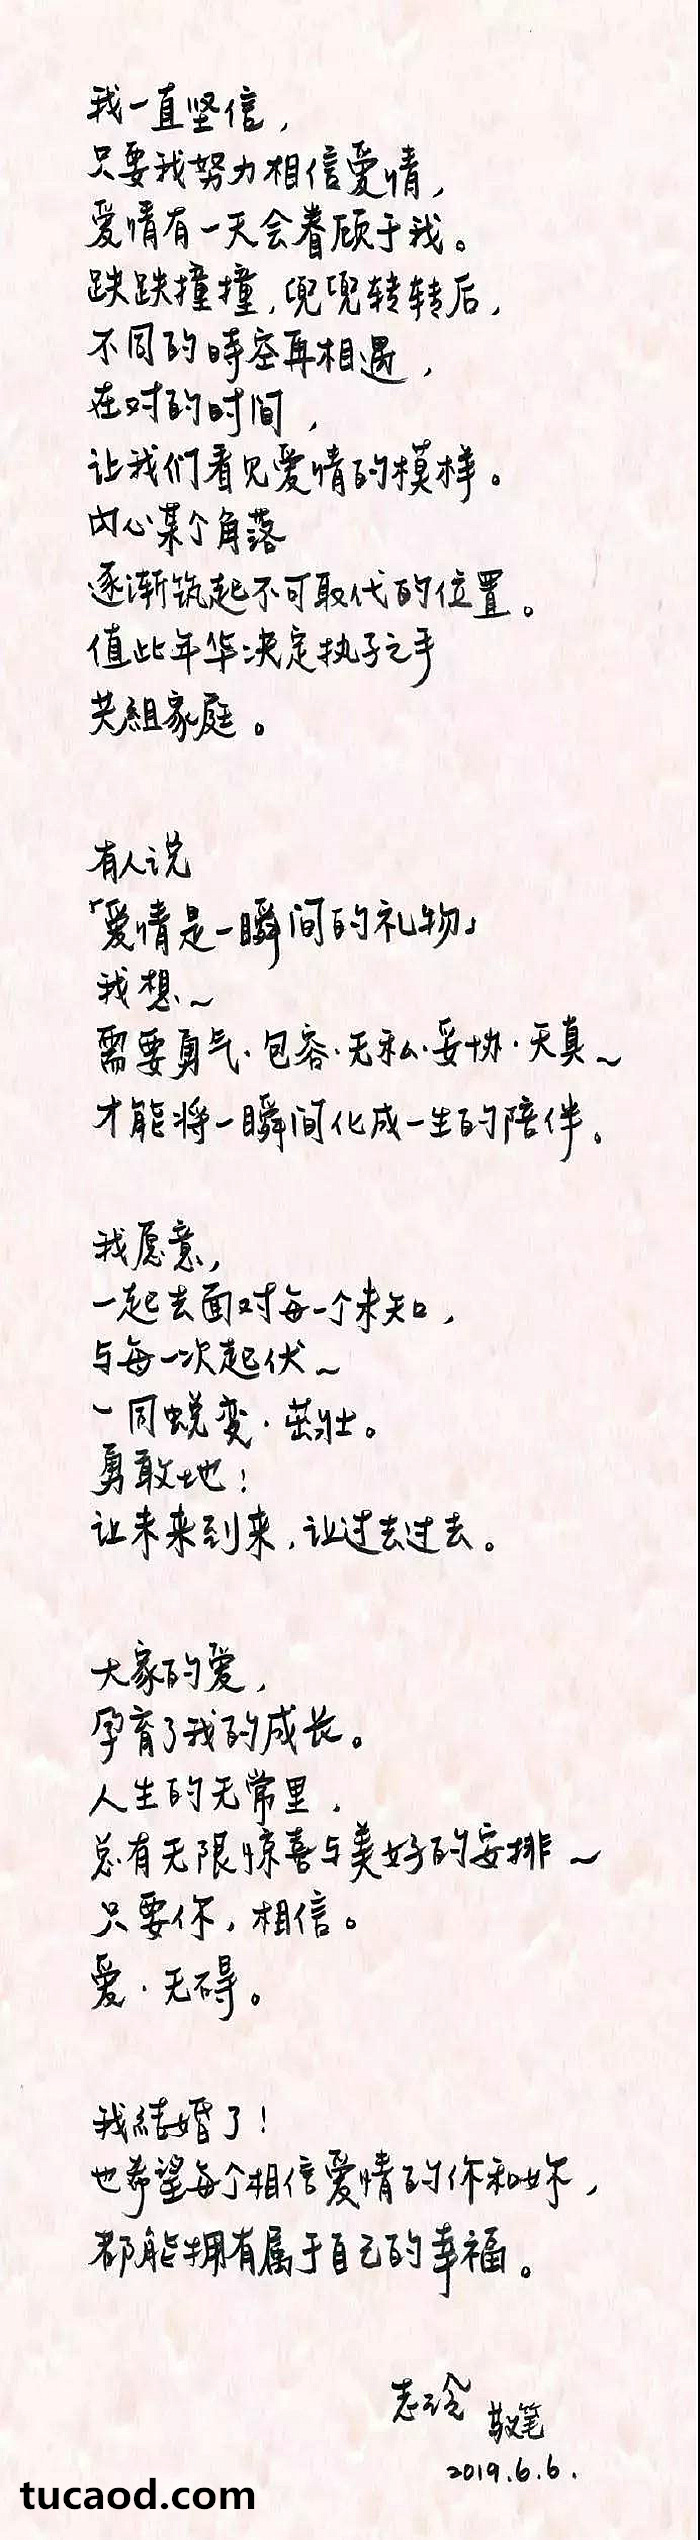 我一直坚信，
只要我努力相信爱情，
爱情有一天会眷顾于我。
跌跌撞撞，兜兜转转后，
不同的時空再相遇，
在对的时间，
让我们看见爱情的模样。
内心某个角落
逐渐筑起不可取代的位置。
值此年华决定执子之手
共組家庭。
有人说
「爱情是一瞬间的礼物」
我想~
需要勇气·包容·无私·妥协·天真~
才能将一瞬间化成一生的陪伴。
我愿意，
一起去面对每一个未知，
与每一次起伏~
一同蜕变·茁壮。
勇敢地！
让未来到来，让过去过去。
大家的爱，
孕育了我的成长。
人生的无常里，
总有无限惊喜与美好的安排~
只要你，相信。
爱·无碍。
我結婚了！
也希望每个相信爱情的你和妳，
都能拥有属于自己的幸福。
志玲 敬笔
2019.6.6.
tucaod.com